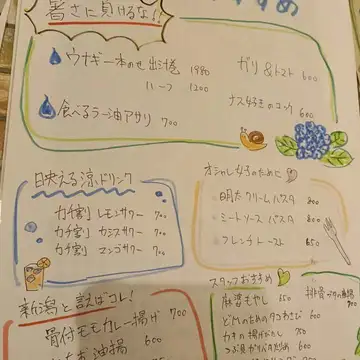 暑さに負けるな!!
おすすめ
ウナギ一本のせ出汁巻 1980
ハーフ 1200
食べるラー油アサリ 700
ガリ&トマト 600
ナス好きのコック 600
日映える涼ドリンク
カチ割 レモンサワー 700
カチ割 カシスサワー 700
カチ割 マンゴサワー 700
オシャレ女子のために
明太クリームパスタ 800
ミートソースパスタ 800
フレンチトースト 650
新潟と言えばコレ!
骨付モモカレー揚げ 700
油揚 600
スタッフおすすめ
麻婆もやし 650
どMのためのタコわさび 600
カキの揚げだし 750